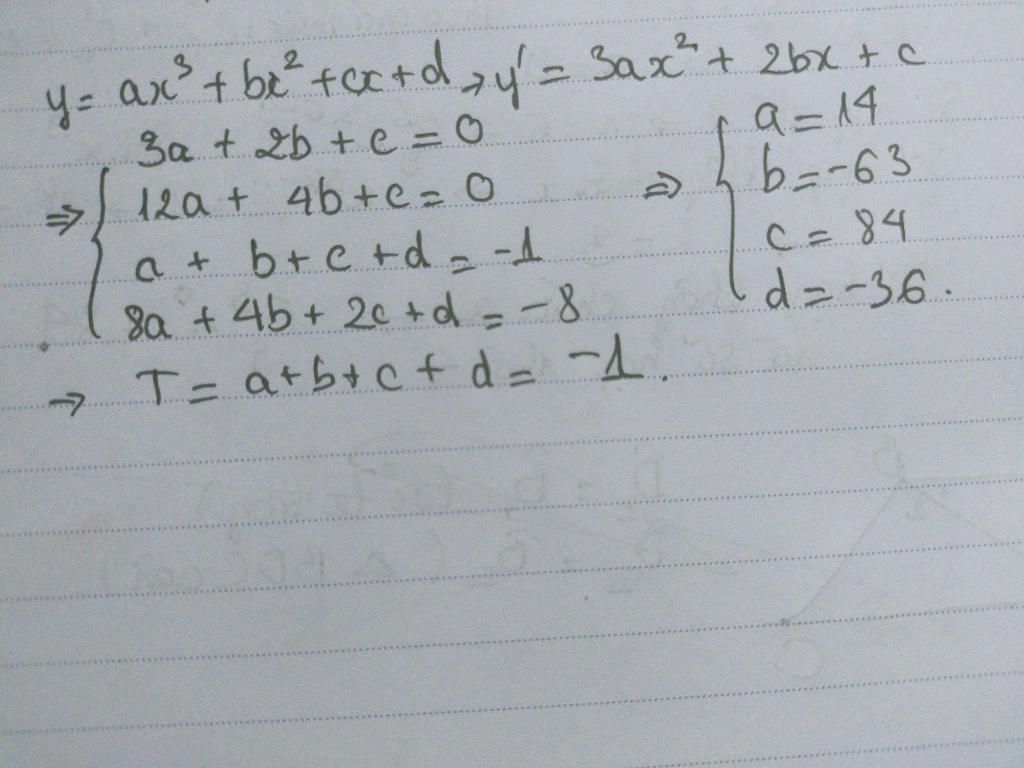 y = ax³ + bx² + cx + d → y' = 3ax² + 2bx + c
3a + 2b + c = 0
12a + 4b + c = 0
a + b + c + d = -1
8a + 4b + 2c + d = -8
⇒ a = 14
b = -63
c = 84
d = -36.
→ T = a + b + c + d = -1.